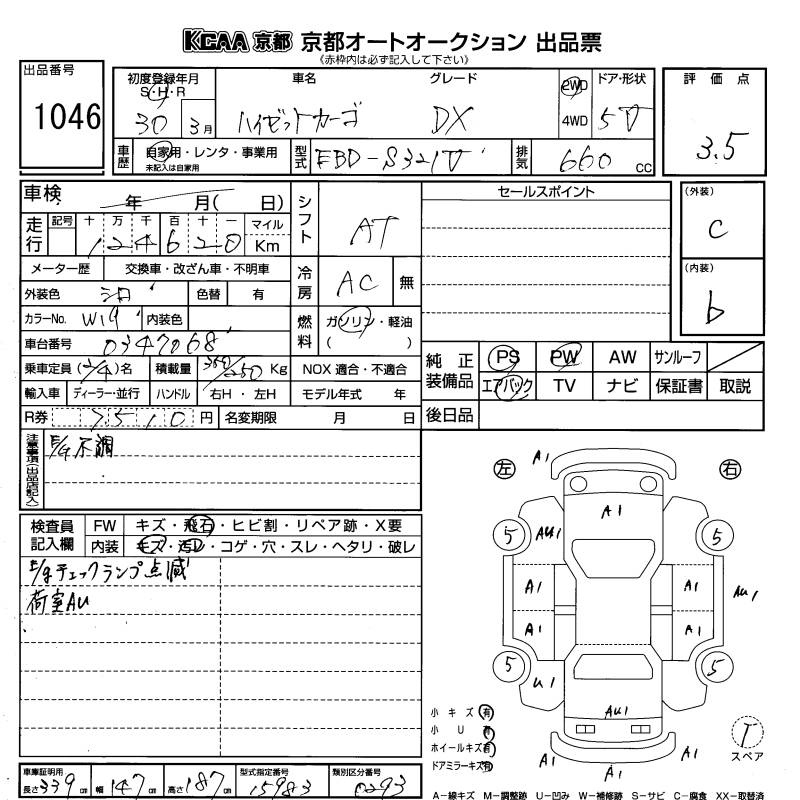 KCAA 京都 京都オートオークション 出品票
《赤枠内は必ず記入して下さい》
出品番号
1046
初度登録年月
S・H・R
30
3月
車名
ハイゼットカーゴ
グレード
DX
2WD
4WD
ドア・形状
5D
評価点
3.5
車歴
自家用・レンタ・事業用
未記入は自家用
型式
EBD-S321V
排気
660 cc
車検
年 月( 日)
走行
記号 十 万 千 百 十 一
124620
マイル
Km
シフト
AT
メーター歴
交換車・改ざん車・不明車
冷房
AC
無
外装色
シロ
色替
有
カラーNo.
W19
内装色
燃料
ガソリン・軽油
( )
車台番号
0347068
乗車定員
(2/4)名
積載量
350/250 Kg
NOX 適合・不適合
輸入車
ディーラー・並行
ハンドル
右H・左H
モデル年式 年
R券
7510 円
名変期限 月 日
セールスポイント
(外装)
C
(内装)
b
純正装備品
PS
PW
AW
サンルーフ
エアバック
TV
ナビ
保証書
取説
後日品
注意事項(出品店記入)
E/g不調
検査員記入欄
FW
キズ・飛石・ヒビ割・リペア跡・X要
内装
キズ・汚レ・コゲ・穴・スレ・ヘタリ・破レ
E/gチェックランプ点滅
荷室AU
左
右
A1
A1
5
AU1
5
A1
A1
AU1
A1
A1
5
U1
5
AU1
A1
A1
A1
小キズ 有
小U 有
ホイールキズ 有
ドアミラーキズ 有
T
スペア
車庫証明用
長さ 339 cm
幅 147 cm
高さ 187 cm
型式指定番号
15983
類別区分番号
0293
A-線キズ M-調整跡 U-凹み W-補修跡 S-サビ C-腐食 XX-取替済